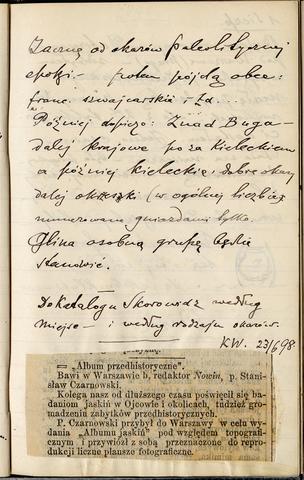 Zacznę od okazów paleolitycznej
epoki — potem pójdą obce
franc. szwajcarskie i t.d...
Później dopiero: Znad Buga —
dalej krajowe poza Kieleckiem
a później kieleckie: dobre okazy
dalej okrzeski (w ogólnej liczbie)
numerowane gniazdami tylko.
Glina osobną grupę będzie
stanowić.
Do Katalogu Skorowidz według
miejsc — i według rodzaju okazów.
KW. 23/6 98
= „Album przedhistoryczne".
Bawi w Warszawie b. redaktor Nowin, p. Stani-
sław Czarnowski.
Kolega nasz od dłuższego czasu poświęcił się ba-
daniom jaskiń w Ojcowie i okolicach, tudzież gro-
madzeniu zabytków przedhistorycznych.
P. Czarnowski przybył do Warszawy w celu wy-
dania „Albumu jaskiń" pod względem topografi-
cznym i przywiózł z sobą przeznaczone do repro-
dukcji liczne plansze fotograficzne.